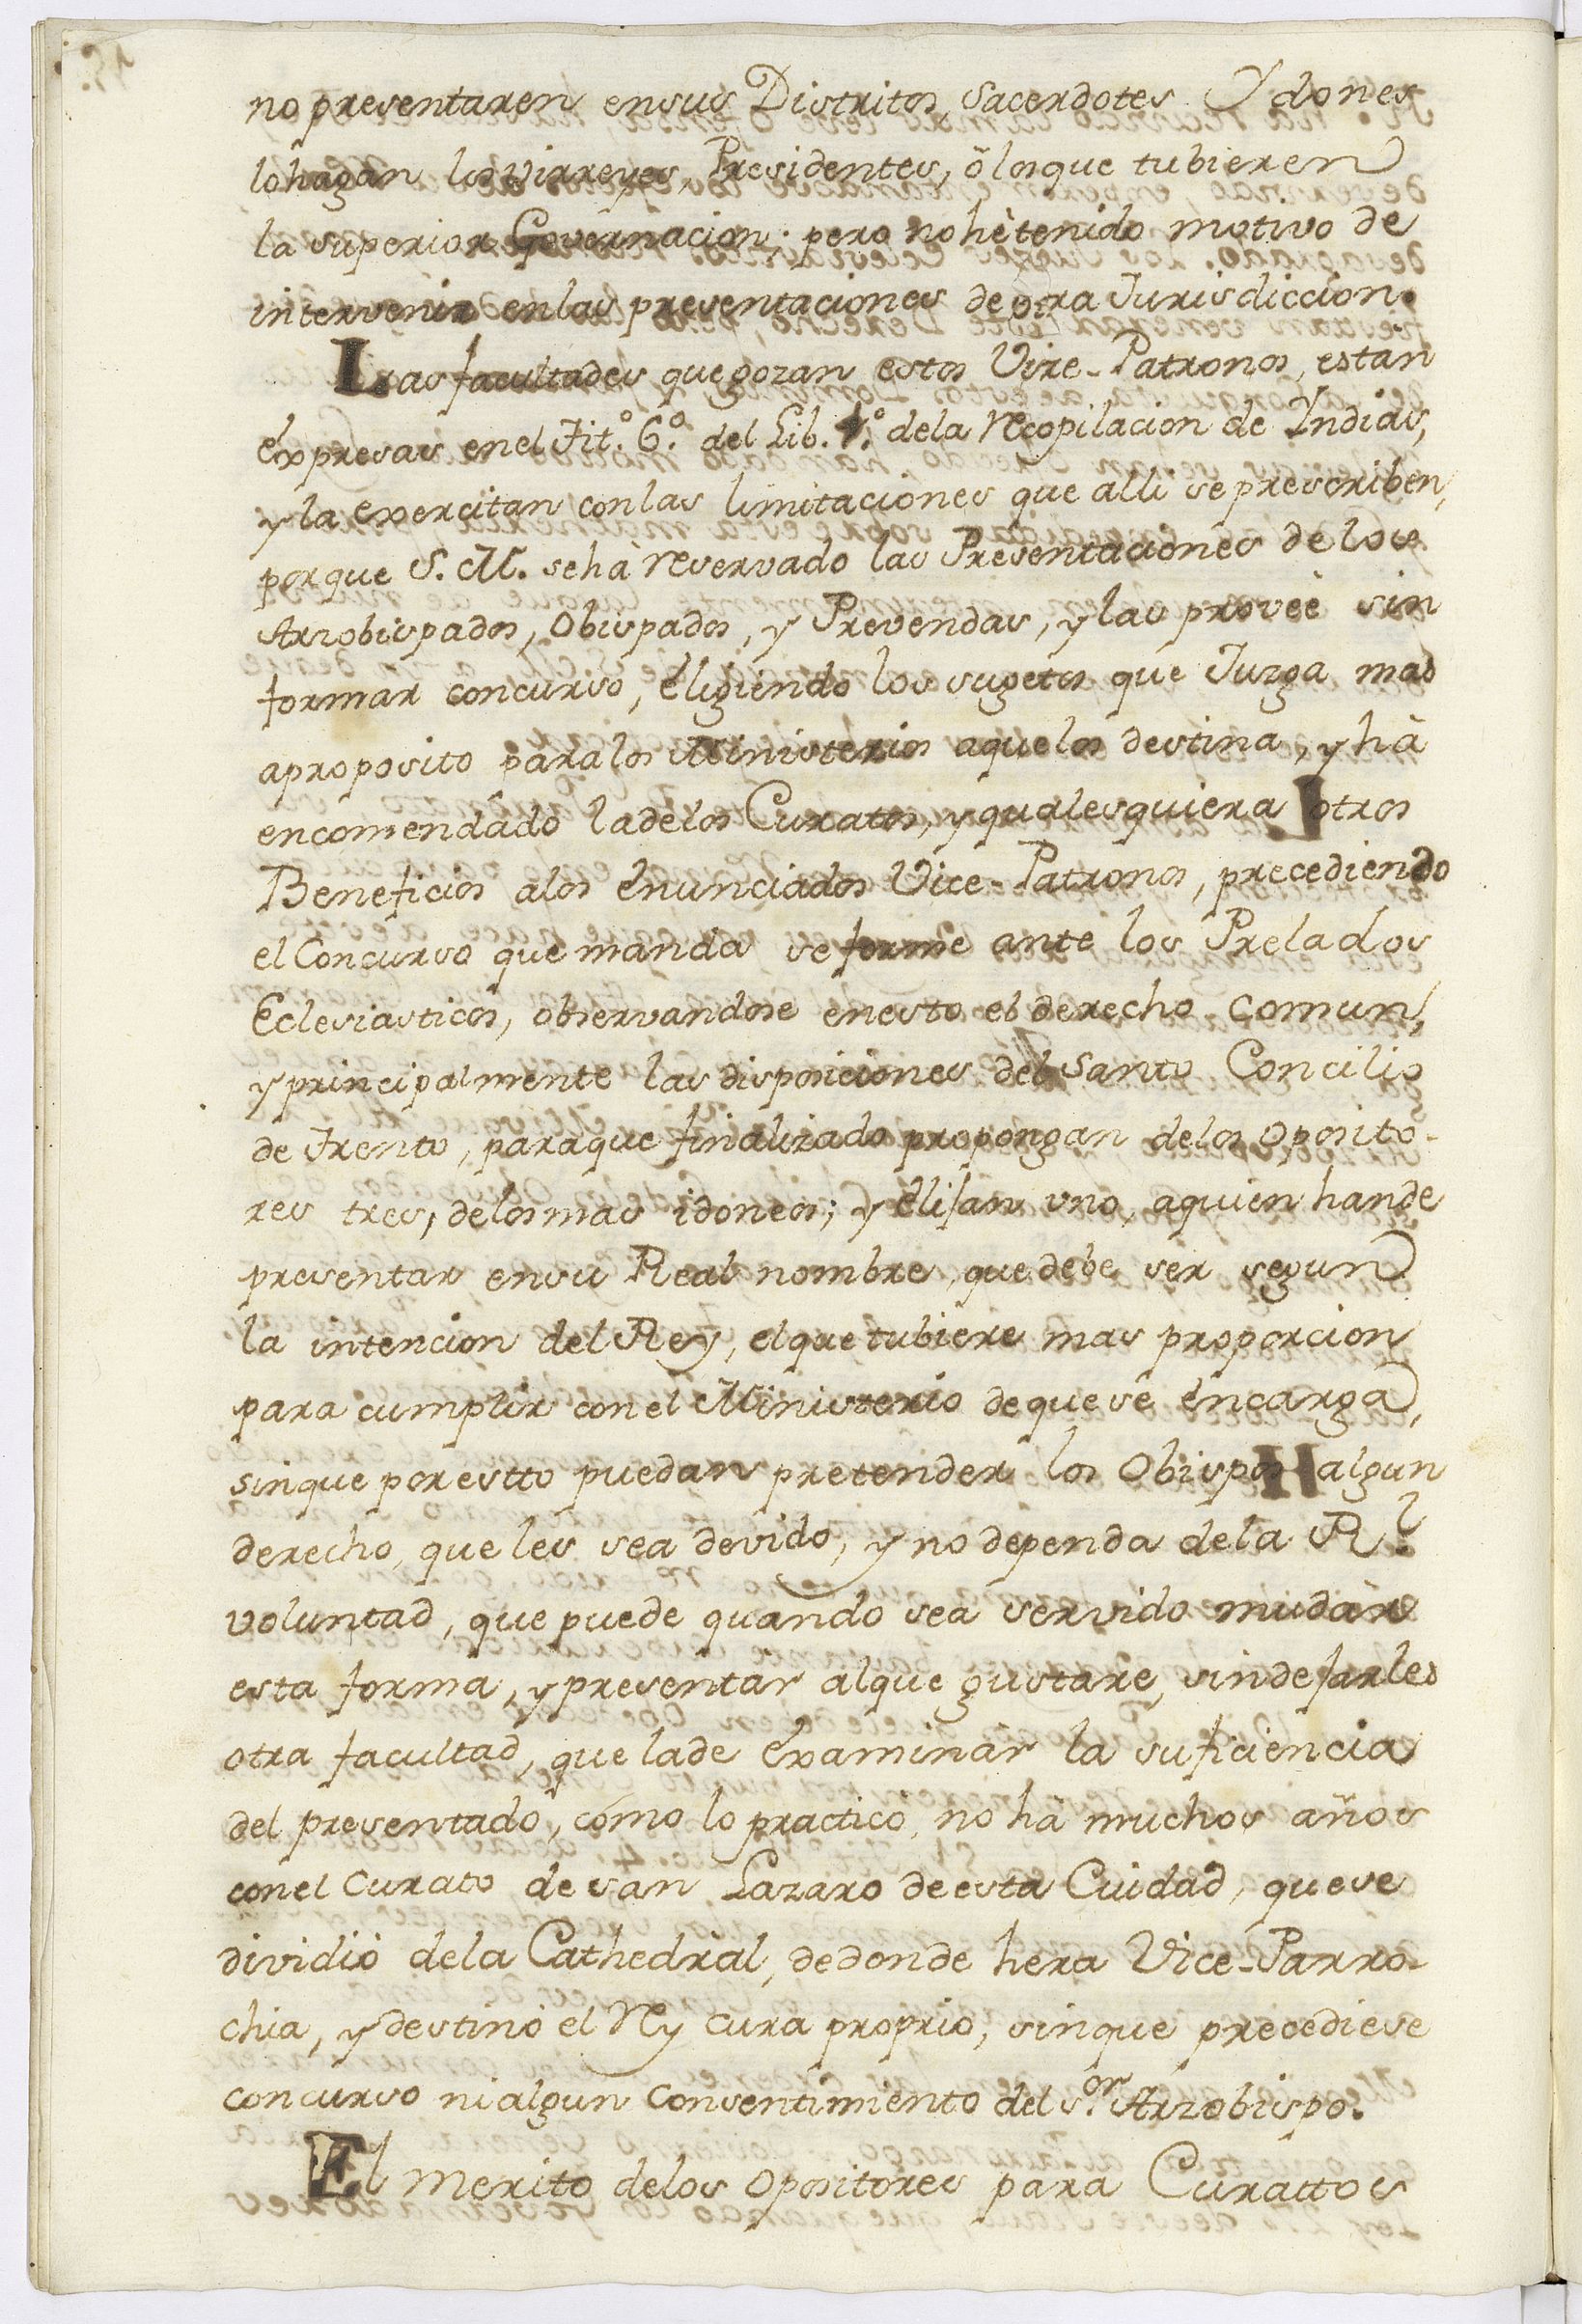 no presentaren ensus Distritos, Sacerdotes Ydones
lohagan los Virreyes, Presidentes, ô los que tubieren
la superior Governacion; pero no hè tenido motivo de
intervenir enlas presentaciones de otra Jurisdiccion.
Las facultades que gozan estos Vize-Patronos, estan
expresas en el Tit.º 6.º del Lib. 1.º dela Recopilacion de Indias,
y la exercitan con las limitaciones que alli se prescriben,
porque S. M. se hà reservado las Presentaciones de los
Arzobispados, Obispados, y Prevendas, y las proveè sin
formar concurso, èligiendo los sugetos que Juzga mas
aproposito para los Ministerios aque los destina, y hà
encomendado la delos Curatos, y qualesquiera otros
Beneficios alos ènunciados Vice-Patronos, precediendo
el Concurso que manda se forme ante los Prelados
Eclesiasticos, observandose enesto el derecho comun,
y principalmente las disposiciones del Santo Concilio
de Trento, paraque finalizado propongan delos oposito-
res tres, delos mas idoneos; y èlijan uno, aquien hande
presentar ensu Real nombre, que debe ser segun
la intencion del Rey, elque tubiere mas proporcion
para cumplir con el Ministerio de que se èncarga,
sinque por estto puedan pretender los Obispos algun
derecho, que les sea devido, y no dependa dela R.l
voluntad, que puede quando sea servido mudar
esta forma, y presentar alque gustare, sindejarles
otra facultad, que lade èxaminar la suficiencia
del presentado, como lo practicò no hà muchos años
conel Curato de san Lazaro de esta Cuidad, que se
dividiò dela Cathedral, dedonde hera Vice-Parro-
chia, y destinò el Rey cura proprio, sinque precediese
concurso ni algun consentimiento del S.or Arzobispo.
El merito delos opositores para Curattos